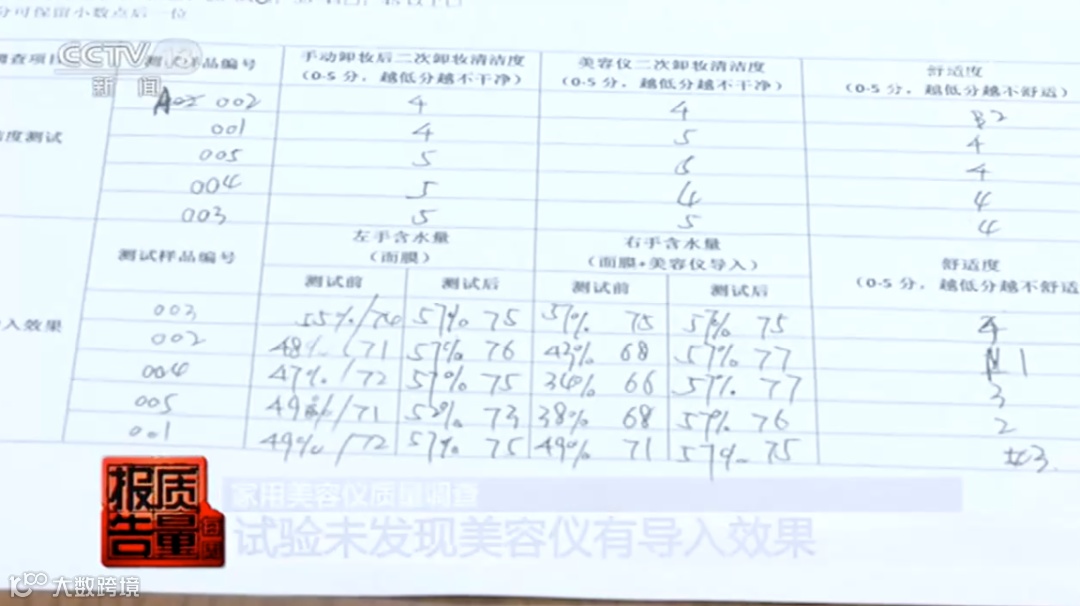 分可保留小数点后一位
CCTV 13
新闻
调查项目 测试样品编号 手动卸妆后二次卸妆清洁度 美容仪二次卸妆清洁度 舒适度
(0-5 分，越低分越不干净) (0-5 分，越低分越不干净) (0-5 分，越低分越不舒适)
002 4 4 2
洁度测试
001 4 5 4
005 5 4
004 5 4 4
003 5 5 4
测试样品编号 左手含水量 右手含水量 舒适度
(面膜) (面膜+美容仪导入) (0-5 分，越低分越不舒适
测试前 测试后 测试前 测试后
导入效果
003 55%/74 57% 75 57% 75 57% 75 4
002 48%/71 57% 76 43% 68 57% 77 1
004 47%/72 57% 75 34% 66 57% 77 3
005 49%/71 52% 73 38% 68 57% 76 2
001 49%/72 57% 75 49% 71 57% 75 3
质量报告
家用美容仪质量调查
试验未发现美容仪有导入效果
大数跨境